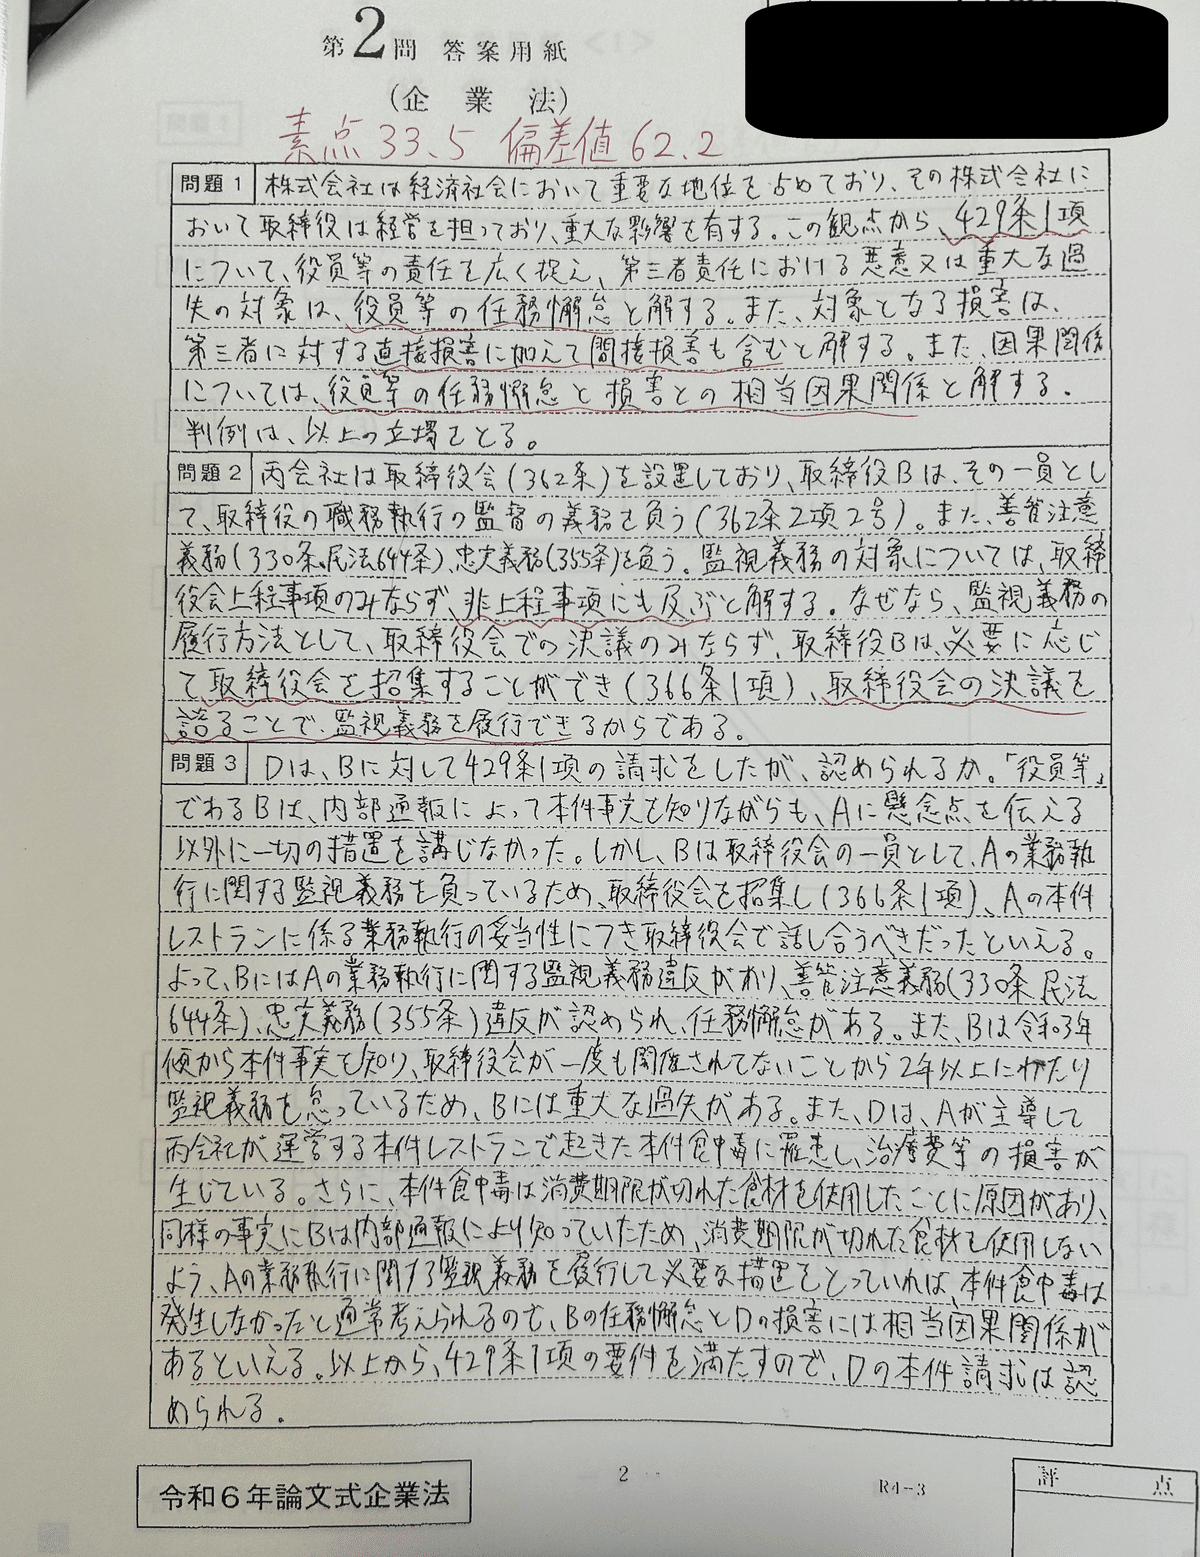 第2問 答案用紙
(企業法)
素点33.5 偏差値62.2
問題1 株式会社は経済社会において重要な地位を占めており、その株式会社に
おいて取締役は経営を担っており、重大な影響を有する。この観点から、429条1項
について、役員等の責任を広く捉え、第三者責任における悪意又は重大な過
失の対象は、役員等の任務懈怠と解する。また、対象となる損害は、
第三者に対する直接損害に加えて間接損害も含むと解する。また、因果関係
については、役員等の任務懈怠と損害との相当因果関係と解する。
判例は、以上の立場をとる。
問題2 丙会社は取締役会(362条)を設置しており、取締役Bは、その一員とし
て、取締役の職務執行の監督の義務を負う(362条2項2号)。また、善管注意
義務(330条、民法644条)、忠実義務(355条)を負う。監視義務の対象については、取締
役会上程事項のみならず、非上程事項にも及ぶと解する。なぜなら、監視義務の
履行方法として、取締役会での決議のみならず、取締役Bは、必要に応じ
て取締役会を招集することができ(366条1項)、取締役会の決議を
諮ることで、監視義務を履行できるからである。
問題3 Dは、Bに対して429条1項の請求をしたが、認められるか。「役員等」
であるBは、内部通報によって本件事実を知りながらも、Aに懸念点を伝える
以外に一切の措置を講じなかった。しかし、Bは取締役会の一員として、Aの業務執
行に関する監視義務を負っているため、取締役会を招集し(366条1項)、Aの本件
レストランに係る業務執行の妥当性につき取締役会で話し合うべきだったといえる。
よって、BにはAの業務執行に関する監視義務違反があり、善管注意義務(330条、民法
644条)、忠実義務(355条)違反が認められ、任務懈怠がある。また、Bは令和3年
頃から本件事実を知り、取締役会が一度も開催されてないことから2年以上にわたり
監視義務を怠っているため、Bには重大な過失がある。また、Dは、Aが主導して
丙会社が運営する本件レストランで起きた本件食中毒に罹患し、治療費等の損害が
生じている。さらに、本件食中毒は消費期限が切れた食材を使用したことに原因があり、
同様の事実にBは内部通報により知っていたため、消費期限が切れた食材を使用しない
よう、Aの業務執行に関する監視義務を履行して必要な措置をとっていれば、本件食中毒は
発生しなかったと通常考えられるので、Bの任務懈怠とDの損害には相当因果関係が
あるといえる。以上から、429条1項の要件を満たすので、Dの本件請求は認
められる。
2
R4-3
令和6年論文式企業法
評 点